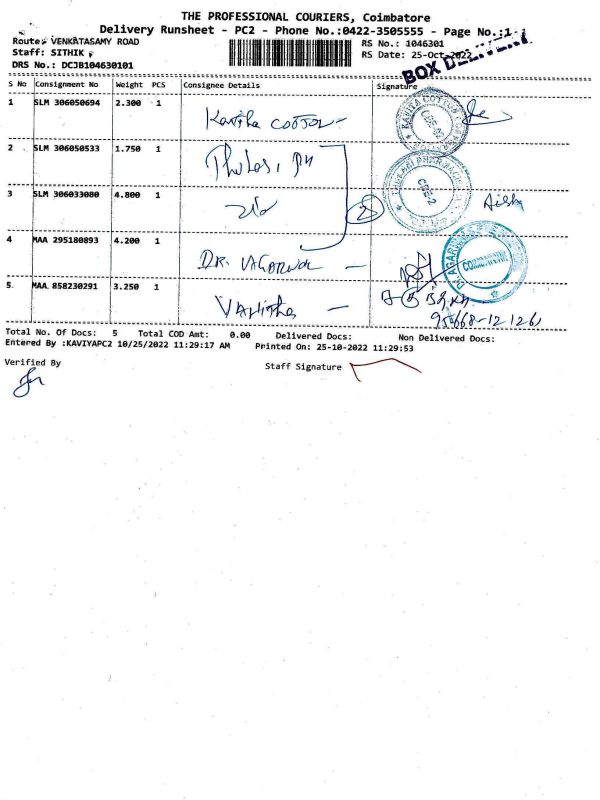 THE PROFESSIONAL COURIERS, Coimbatore
Delivery Runsheet - PC2 - Phone No.:0422-3505555 - Page No.:1
Route: VENKATASAMY ROAD
RS No.: 1046301
Staff: SITHIK
RS Date: 25-Oct-2022
DRS No.: DCJB104630101
BOX DELIVERY
S No Consignment No Weight PCS Consignee Details Signature
1 SLM 306050694 2.300 1 Kavitha COTTON -
2 SLM 306050533 1.750 1
3 SLM 306033080 4.800 1
4 MAA 295180893 4.200 1 DR. AGARWAL -
5. MAA 858230291 3.250 1
Total No. Of Docs: 5 Total COD Amt: 0.00 Delivered Docs: Non Delivered Docs:
Entered By :KAVIYAPC2 10/25/2022 11:29:17 AM Printed On: 25-10-2022 11:29:53
Verified By
Staff Signature